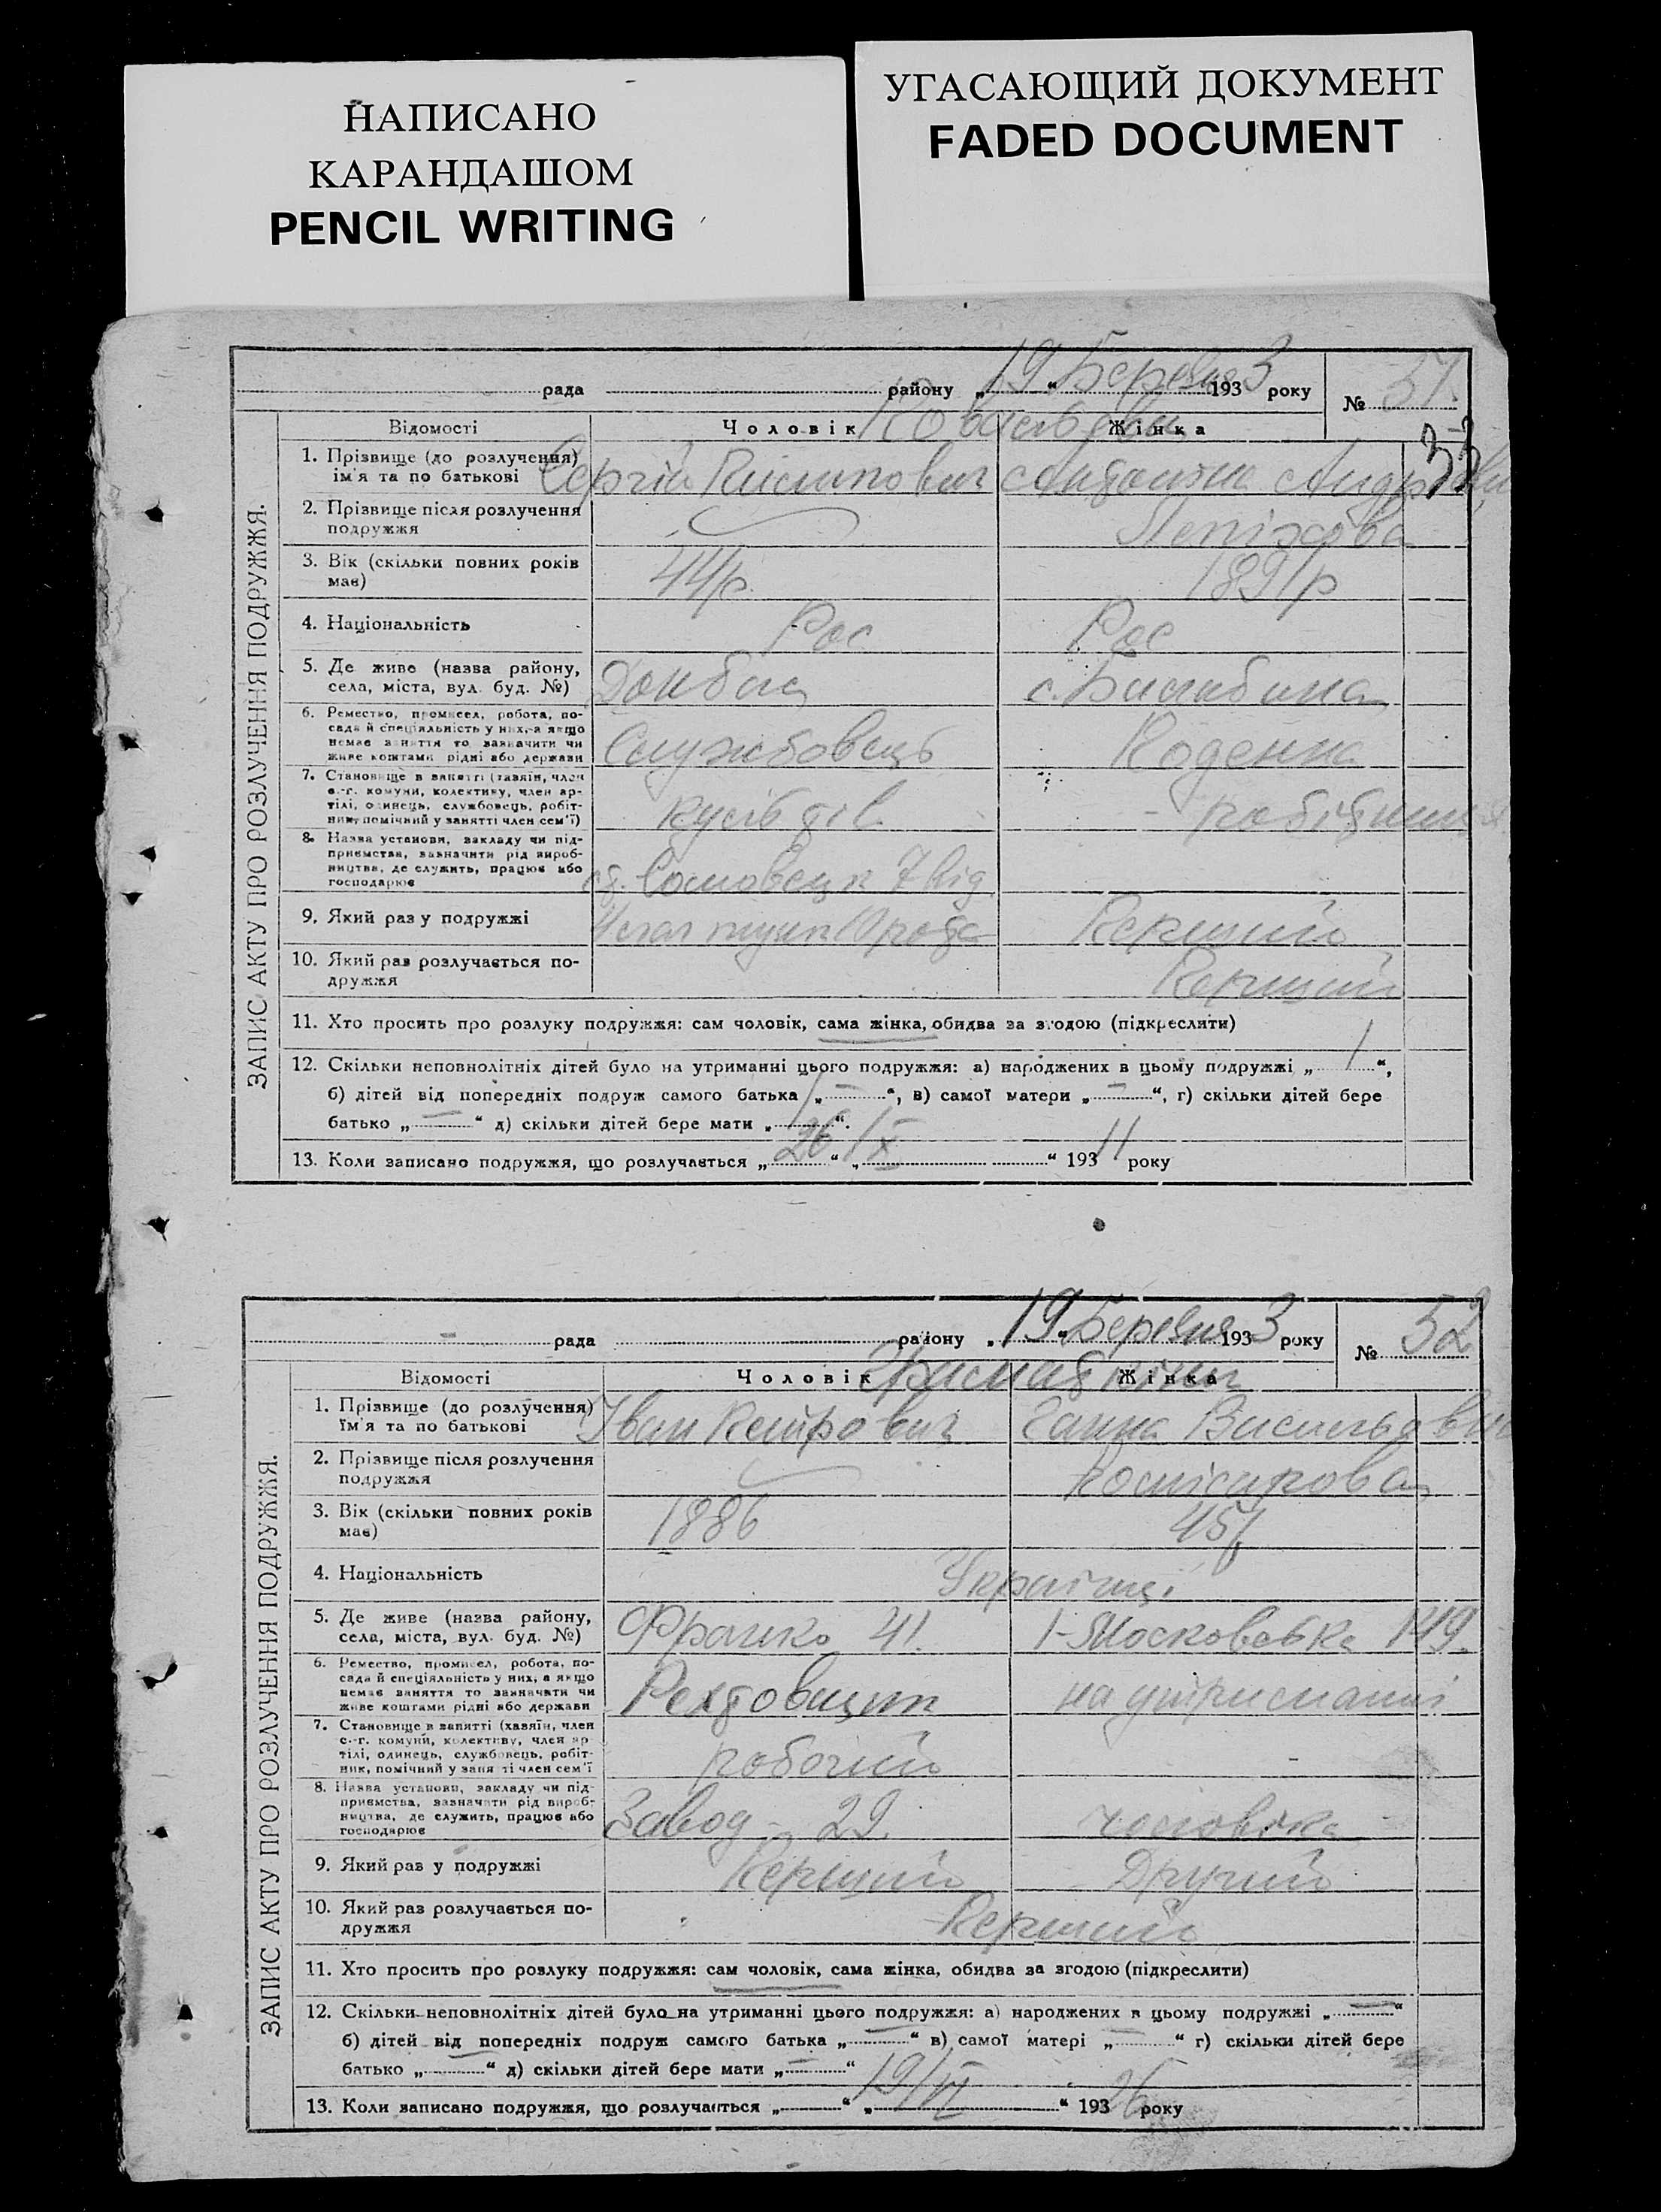 НАПИСАНО
КАРАНДАШОМ
PENCIL WRITING
УГАСАЮЩИЙ ДОКУМЕНТ
FADED DOCUMENT
рада района „19“ Березня 1933 року № 51
33
Відомості Чоловік Жінка
ЗАПИС АКТУ ПРО РОЗЛУЧЕННЯ ПОДРУЖЖЯ.
1. Прізвище (до розлучення) Сергій
ім'я та по батькові
2. Прізвище після розлучення
подружжя
3. Вік (скільки повних років 44р. 1891р
має)
4. Національність Рос Рос
5. Де живе (назва району, Донбас
села, міста, вул. буд. №)
6. Ремество, промисел, робота, по-
сада й спеціяльність у них, а якщо
немає заняття то зазначити чи
живе коштами рідні або держави Службовець
7. Становище в занятті (хазяїн, член
с.-г. комуни, колективу, член ар-
тілі, одинець, службовець, робіт-
ник, помічний у занятті член сем'ї) робітниця
8. Назва установи, закладу чи під-
приємства, зазначити рід вироб-
ництва, де служить, працює або
господарює
9. Який раз у подружжі Перший
10. Який раз розлучається по- Перший
дружжя
11. Хто просить про розлуку подружжя: сам чоловік, сама жінка, обидва за згодою (підкреслити)
12. Скільки неповнолітніх дітей було на утриманні цього подружжя: а) народжених в цьому подружжі „1“,
б) дітей від попередніх подруж самого батька „—“, в) самої матери „—“, г) скільки дітей бере
батько „—“ д) скільки дітей бере мати „1“.
13. Коли записано подружжя, що розлучається „26“ „IX“ 193 11 року
рада району „19“ Березня 1933 року № 52
Відомості Чоловік Жінка
ЗАПИС АКТУ ПРО РОЗЛУЧЕННЯ ПОДРУЖЖЯ.
1. Прізвище (до розлучення) Іван Петрович Ганна Васильовна
ім'я та по батькові
2. Прізвище після розлучення
подружжя
3. Вік (скільки повних років 1886 45р
має)
4. Національність Українці
5. Де живе (назва району, Франко 41. 1-Московська 149.
села, міста, вул. буд. №)
6. Ремество, промисел, робота, по-
сада й спеціяльність у них, а якщо
немає заняття то зазначати чи
живе коштами рідні або держави на утриманні
7. Становище в занятті (хазяїн, член
с.-г. комуни, колективу, член ар-
тілі, одинець, службовець, робіт-
ник, помічний у занятті член сем'ї робочий -
8. Назва установи, закладу чи під-
приємства, зазначити рід вироб-
ництва, де служить, працює або
господарює Завод - 29. чоловіка
9. Який раз у подружжі Перший Другий
10. Який раз розлучається по- Перший
дружжя
11. Хто просить про розлуку подружжя: сам чоловік, сама жінка, обидва за згодою (підкреслити)
12. Скільки неповнолітніх дітей було на утриманні цього подружжя: а) народжених в цьому подружжі „—“
б) дітей від попередніх подруж самого батька „—“ в) самої матері „—“ г) скільки дітей бере
батько „—“ д) скільки дітей бере мати „—“
13. Коли записано подружжя, що розлучається „19/VI“ 193 26 року